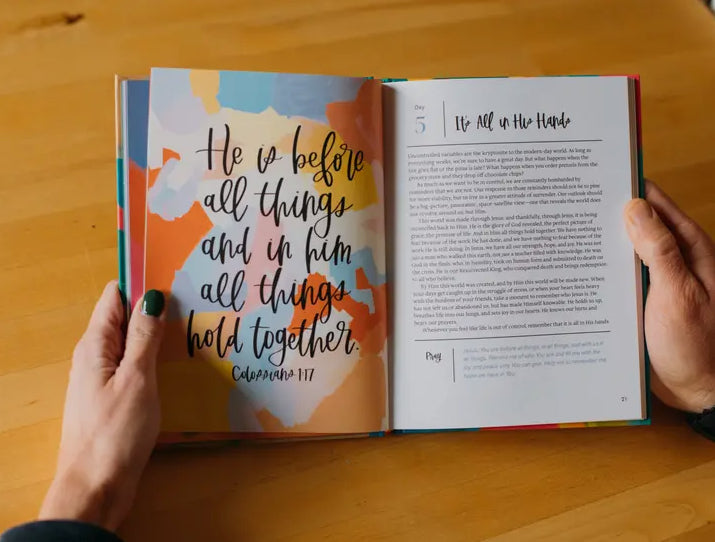 He is before
all things
and in him
all things
hold together.
Colossians 1:17
Day
5
It's All in His Hands
Uncontrolled variables are the kryptonite to the modern-day world. As long as
everything works, we're sure to have a great day. But what happens when the
tire goes flat or the pipe is late? What happens when you order pretzels from the
grocery store and they drop off chocolate chips?
As much as we want to be in control, we are constantly bombarded by
reminders that we are not. Our response to those reminders should not be to pine
for more stability, but to live in a greater attitude of surrender. Our outlook should
be a big-picture, panoramic, space-satellite view—one that reveals the world does
not revolve around us but Him.
This world was made through Jesus; and thankfully, through Jesus, it is being
reconciled back to Him. He is the glory of God revealed, the perfect picture of
grace, the promise of life. And in Him all things hold together. We have nothing to
fear because of the work He has done, and we have nothing to fear because of the
work He is still doing. In Jesus, we have all our strength, hope, and joy. He was not
just a man who walked this earth, not just a teacher filled with knowledge. He was
God in the flesh, who, in humility, took on human form and submitted to death on
the cross. He is our Resurrected King, who conquered death and brings redemption
to all who believe.
By Him this world was created, and by Him this world will be made new. When
your days get caught up in the struggle of stress, or when your heart feels heavy
with the burdens of your friends, take a moment to remember who Jesus is. He
has not left us or abandoned us, but has made Himself knowable. He holds us up,
breathes life into our lungs, and sets joy in our hearts. He knows our hurts and
hears our prayers.
Whenever you feel like life is out of control, remember that it is all in His hands.
Pray
Jesus, You are before all things, in all things, and with us in
all things. Remind me of who You are and fill me with the
joy and peace only You can give. Help me to remember
21